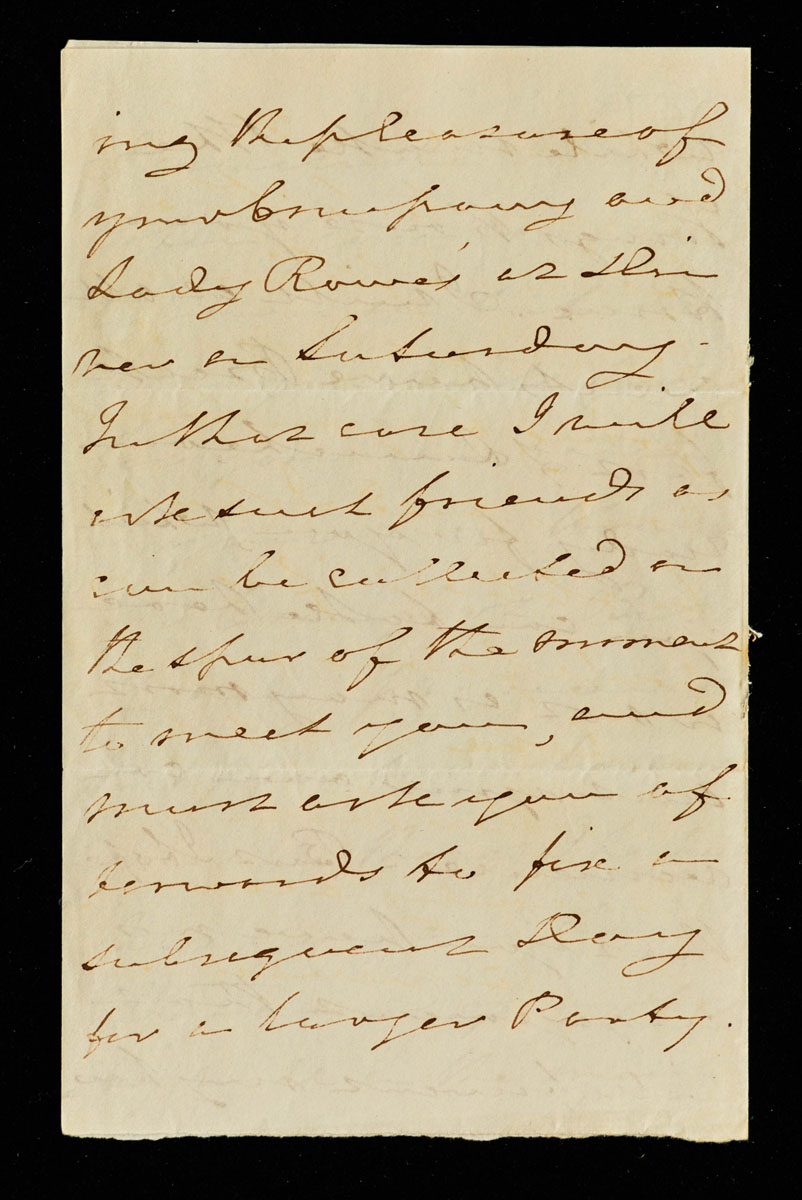 ing the pleasure of
your Company and
Lady Rowe's at Din
ner on Saturday.
In that case I will
ask such friends as
can be collected on
the spur of the moment
to meet you, and
must ask you af
terwards to fix a
subsequent Day
for a larger Party.